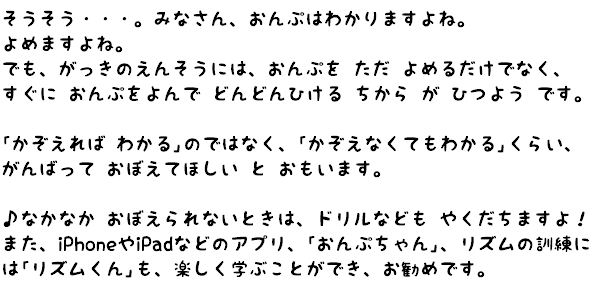 そうそう・・・。みなさん、おんぷはわかりますよね。
よめますよね。
でも、がっきのえんそうには、おんぷを ただ よめるだけでなく、
すぐに おんぷをよんで どんどんひける ちから が ひつよう です。
「かぞえれば わかる」のではなく、「かぞえなくてもわかる」くらい、
がんばって おぼえてほしい と おもいます。
♪なかなか おぼえられないときは、ドリルなども やくだちますよ！
また、iPhoneやiPadなどのアプリ、「おんぷちゃん」、リズムの訓練に
は「リズムくん」も、楽しく学ぶことができ、お勧めです。